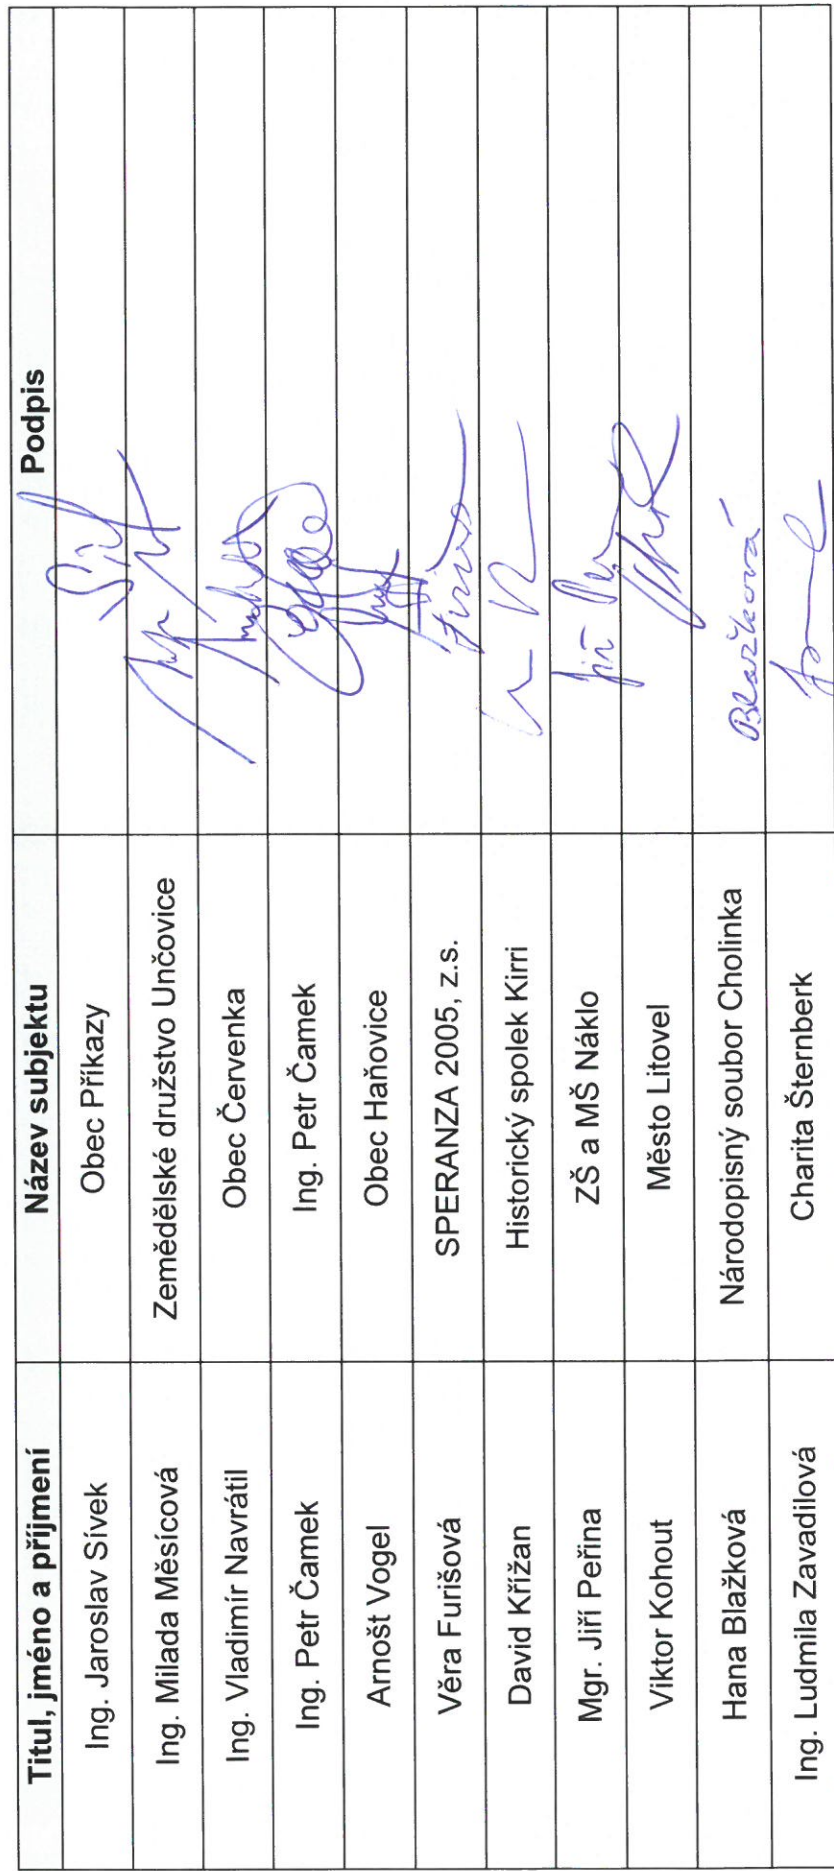 Titul, jméno a příjmení Název subjektu Podpis
Ing. Jaroslav Sívek Obec Příkazy
Ing. Milada Měsícová Zemědělské družstvo Unčovice
Ing. Vladimír Navrátil Obec Červenka
Ing. Petr Čamek Ing. Petr Čamek
Arnošt Vogel Obec Haňovice
Věra Furišová SPERANZA 2005, z.s.
David Křížan Historický spolek Kirri
Mgr. Jiří Peřina ZŠ a MŠ Náklo Jiří
Viktor Kohout Město Litovel
Hana Blažková Národopisný soubor Cholinka Blažková
Ing. Ludmila Zavadilová Charita Šternberk